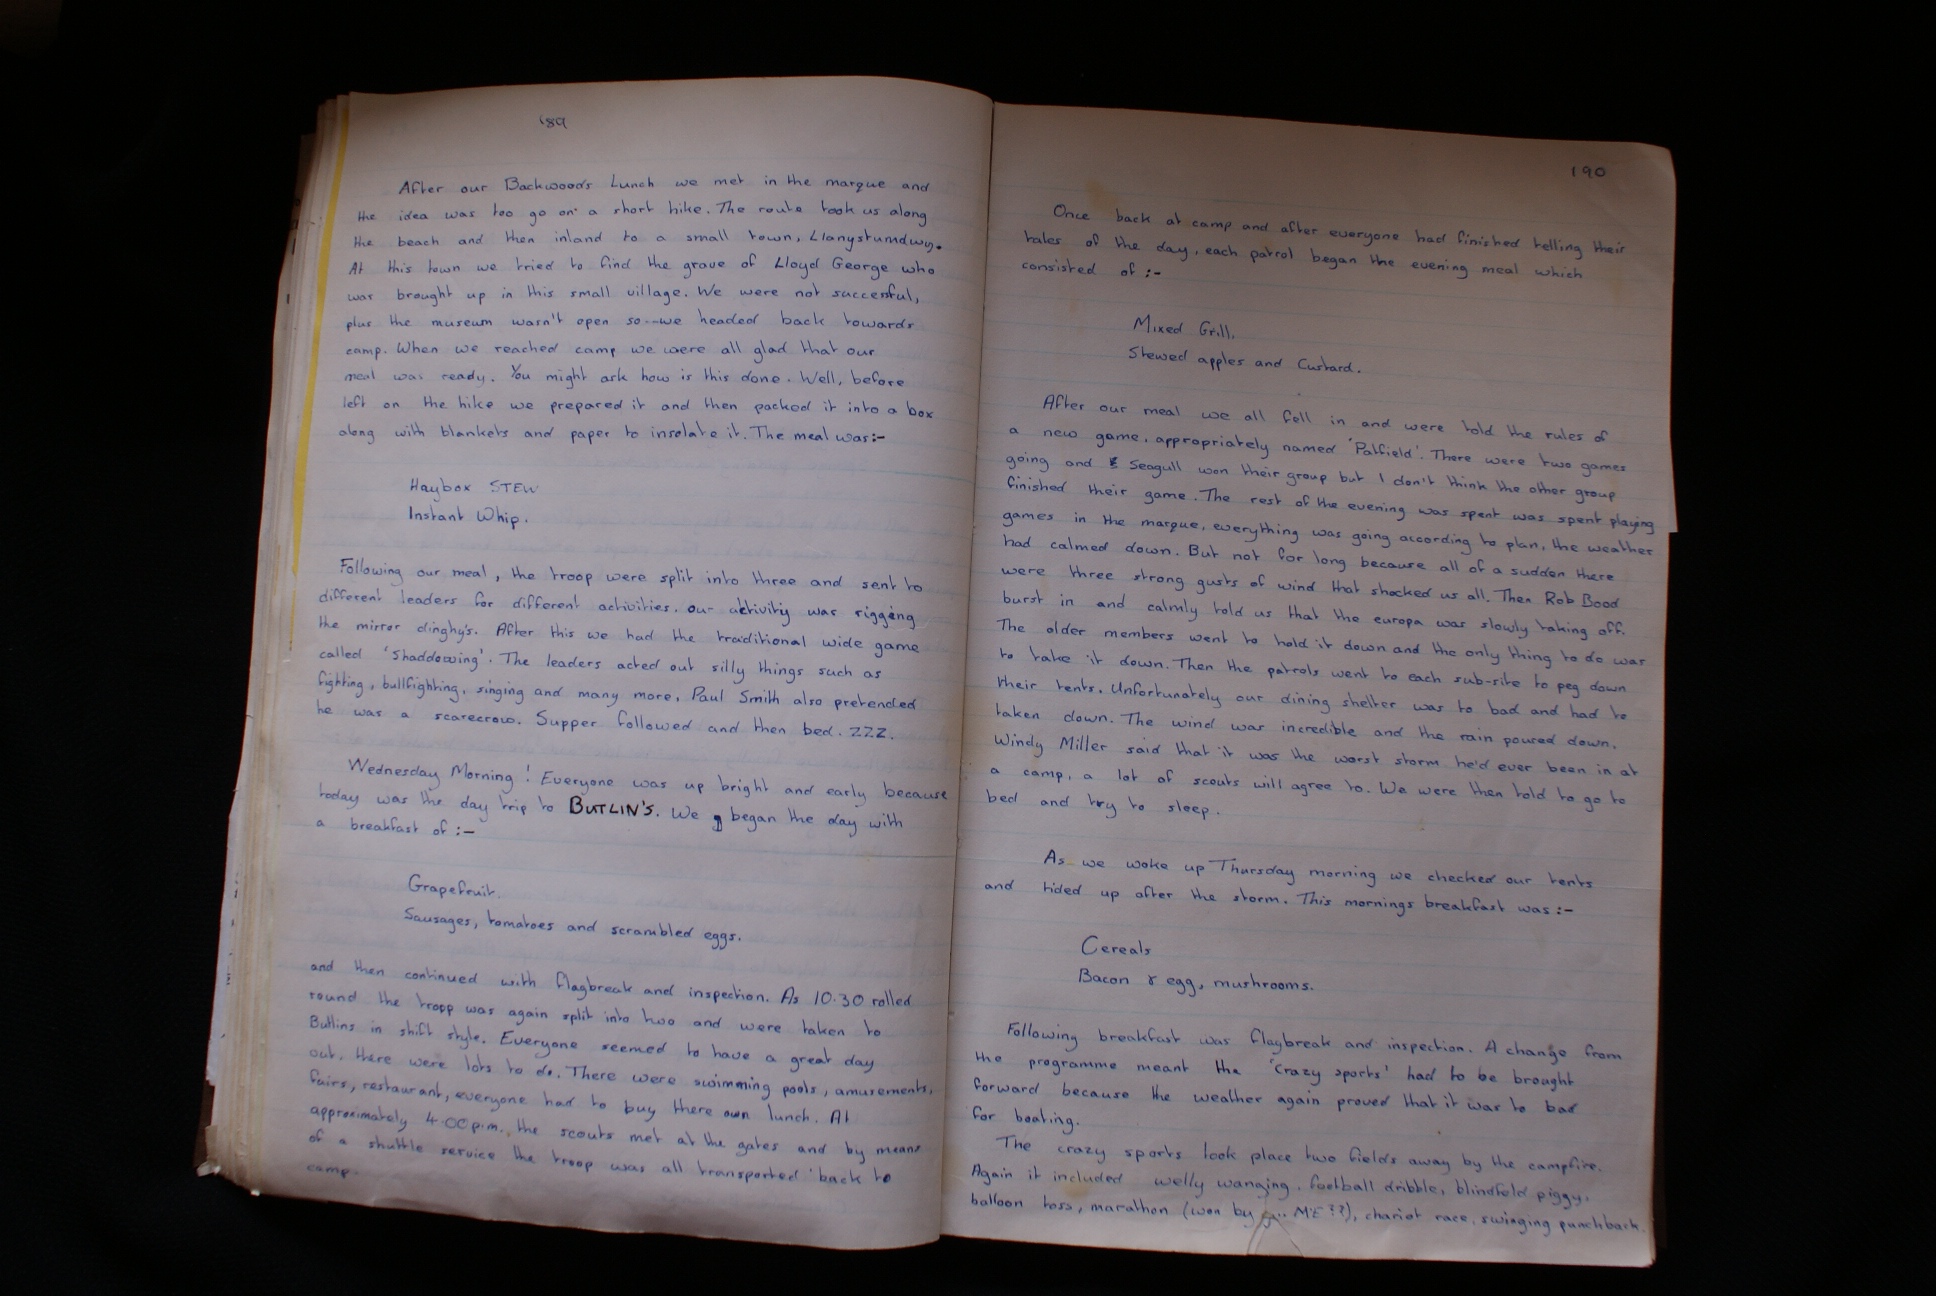 '89
After our Backwoods Lunch we met in the marque and
the idea was too go on a short hike. The route took us along
the beach and then inland to a small town, Llanystumdwy.
At this town we tried to find the grave of Lloyd George who
was brought up in this small village. We were not successful,
plus the museum wasn't open so we headed back towards
camp. When we reached camp we were all glad that our
meal was ready. You might ask how is this done. Well, before
left on the hike we prepared it and then packed it into a box
along with blankets and paper to insolate it. The meal was:-
Haybox STEW
Instant Whip.
Following our meal, the troop were split into three and sent to
different leaders for different activities. our activity was rigging
the mirror dinghy's. After this we had the traditional wide game
called 'Shaddowing'. The leaders acted out silly things such as
fighting, bullfighting, singing and many more. Paul Smith also pretended
he was a scarecrow. Supper followed and then bed. ZZZ.
Wednesday Morning! Everyone was up bright and early because
today was the day trip to BUTLIN'S. We began the day with
a breakfast of :-
Grapefruit.
Sausages, tomatoes and scrambled eggs.
and then continued with flagbreak and inspection. As 10.30 rolled
round the tropp was again split into two and were taken to
Butlins in shift style. Everyone seemed to have a great day
out, there were lots to do. There were swimming pools, amusements,
fairs, restaurant, everyone had to buy there own lunch. At
approximately 4.00 p.m. the scouts met at the gates and by means
of a shuttle service the troop was all transported back to
camp.
190
Once back at camp and after everyone had finished telling their
tales of the day, each patrol began the evening meal which
consisted of :-
Mixed Grill.
Stewed apples and Custard.
After our meal we all fell in and were told the rules of
a new game, appropriately named 'Patfield'. There were two games
going and Seagull won their group but I don't think the other group
finished their game. The rest of the evening was spent was spent playing
games in the marque, everything was going according to plan, the weather
had calmed down. But not for long because all of a sudden there
were three strong gusts of wind that shocked us all. Then Rob Bood
burst in and calmly told us that the europa was slowly taking off.
The older members went to hold it down and the only thing to do was
to take it down. Then the patrols went to each sub-site to peg down
their tents. Unfortunately our dining shelter was to bad and had to
taken down. The wind was incredible and the rain poured down.
Windy Miller said that it was the worst storm he'd ever been in at
a camp, a lot of scouts will agree to. We were then told to go to
bed and try to sleep.
As we woke up Thursday morning we checked our tents
and tided up after the storm. This mornings breakfast was :-
Cereals
Bacon & egg, mushrooms.
Following breakfast was flagbreak and inspection. A change from
the programme meant the 'crazy sports' had to be brought
forward because the weather again proved that it was to bad
for boating.
The crazy sports took place two fields away by the campfire.
Again it included welly wanging, football dribble, blindfold piggy,
balloon toss, marathon (won by ... ME??), chariot race, swinging punchback.